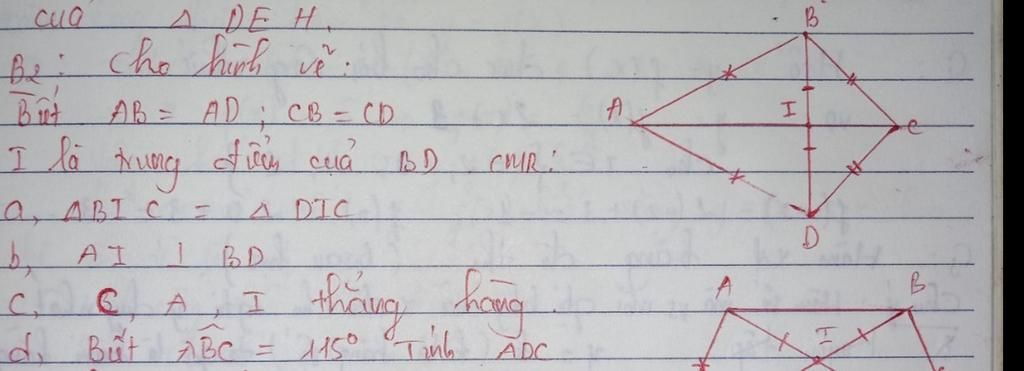 của Δ DEH.
B2: Cho hình vẽ:
Biết AB = AD ; CB = CD
I là trung điểm của BD CMR:
a, ΔBIC = Δ DIC
b, AI ⊥ BD
c, C, A, I thẳng hàng
d, Biết ABC = 115° Tính ADC
B
A
I
C
D
A
B
I